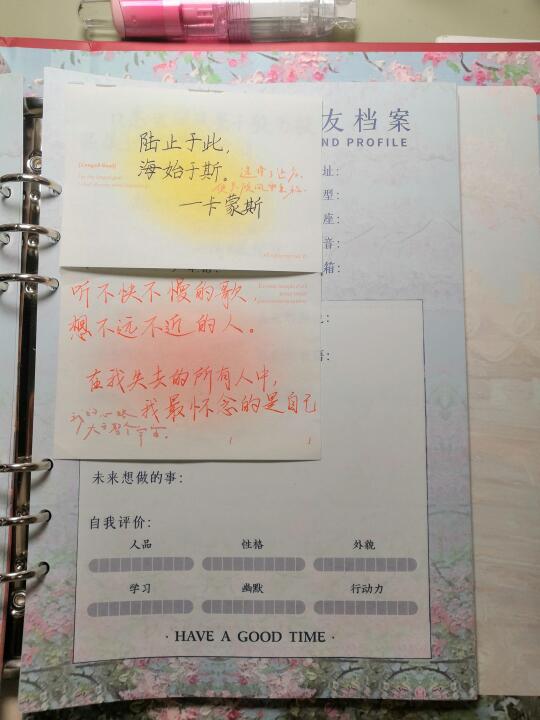 友档案
ND PROFILE
陆止于此，
海始于斯。
—卡蒙斯
址：
型：
座：
音：
箱：
听不快不慢的歌，
想不远不近的人。
在我失去的所有人中，
我最怀念的是自己
未来想做的事：
自我评价：
人品 性格 外貌
学习 幽默 行动力
· HAVE A GOOD TIME ·